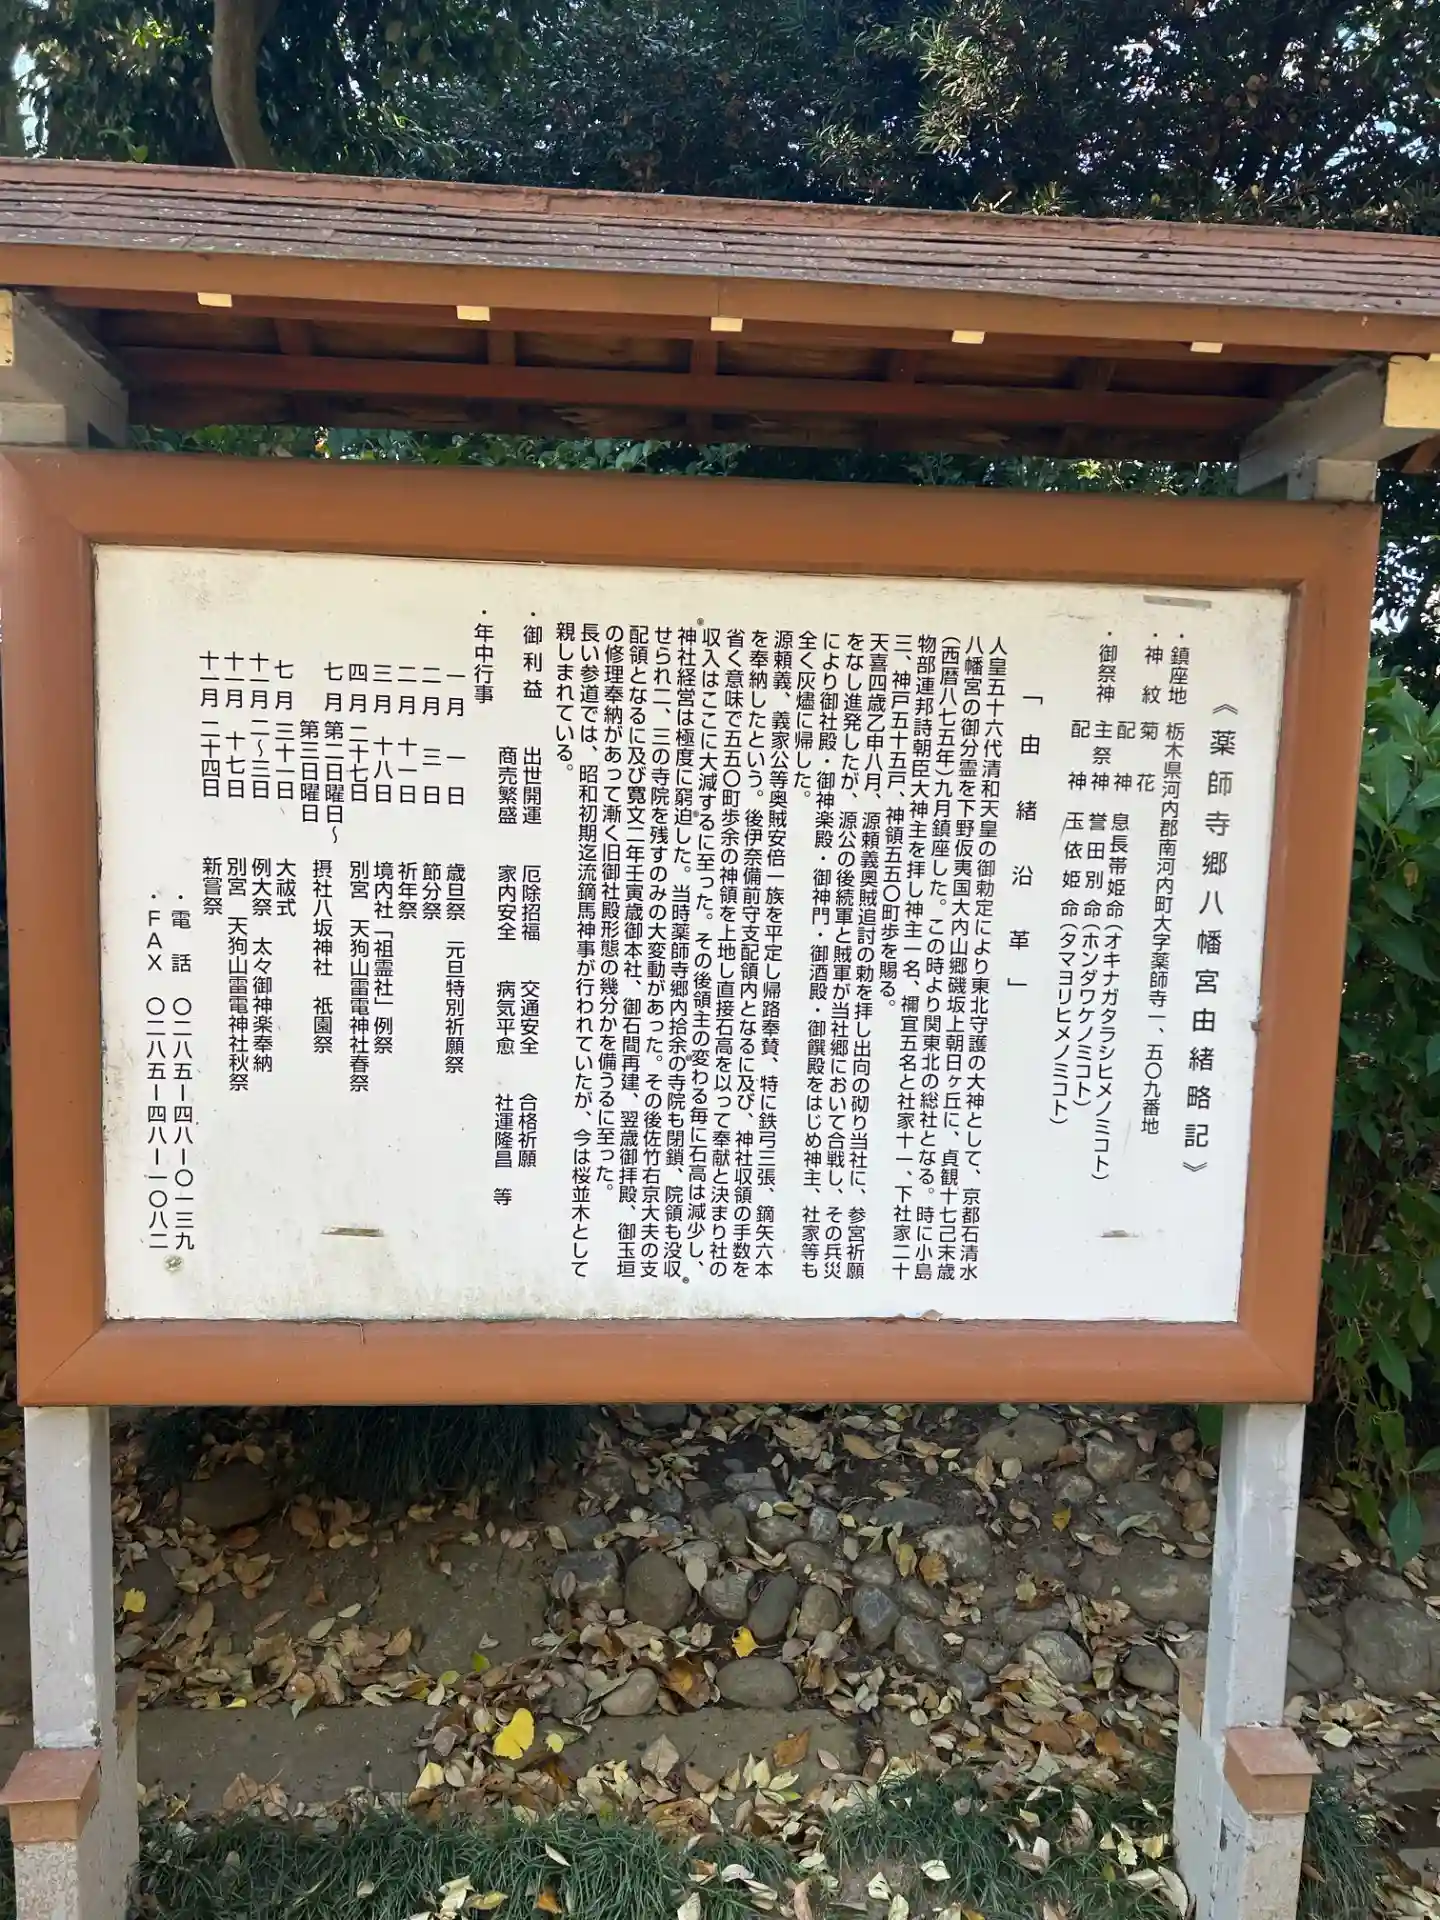 《薬師寺郷八幡宮由緒略記》
・鎮座地 栃木県河内郡南河内町大字薬師寺一、五〇九番地
・神紋 菊花
配神 息長帯姫命(オキナガタラシヒメノミコト)
・御祭神 主祭神 誉田別命(ホンダワケノミコト)
配神 玉依姫命(タマヨリヒメノミコト)
「由緒沿革」
人皇五十六代清和天皇の御勅定により東北守護の大神として、京都石清水
八幡宮の御分霊を下野仮夷国大内山郷磯坂上朝日ヶ丘に、貞観十七己末歳
(西暦八七五年)九月鎮座した。この時より関東北の総社となる。時に小島
物部連邦詩朝臣大神主を拝し神主一名、禰宜五名と社家十一、下社家二十
三、神戸五十五戸、神領五五〇町歩を賜る。
天喜四歳乙申八月、源頼義奥賊追討の勅を拝し出向の砌り当社に、参宮祈願
をなし進発したが、源公の後続軍と賊軍が当社郷において合戦し、その兵災
により御社殿・御神楽殿・御神門・御酒殿・御饌殿をはじめ神主、社家等も
全く灰燼に帰した。
源頼義、義家公等奥賊安倍一族を平定し帰路奉賛、特に鉄弓三張、鏑矢六本
を奉納したという。後伊奈備前守支配領内となるに及び、神社収領の手数を
省く意味で五五〇町歩余の神領を上地し直接石高を以って奉献と決まり社の
収入はここに大減するに至った。その後領主の変わる毎に石高は減少し、
神社経営は極度に窮迫した。当時薬師寺郷内拾余の寺院も閉鎖、院領も没収
せられ一、三の寺院を残すのみの大変動があった。その後佐竹右京大夫の支
配領となるに及び寛文二年壬寅歳御本社、御石間再建、翌歳御拝殿、御玉垣
の修理奉納があって漸く旧御社殿形態の幾分かを備うるに至った。
長い参道では、昭和初期迄流鏑馬神事が行われていたが、今は桜並木として
親しまれている。
・御利益 出世開運 厄除招福 交通安全 合格祈願
商売繁盛 家内安全 病気平愈 社運隆昌 等
・年中行事
一月 一日 歳旦祭 元旦特別祈願祭
二月 三日 節分祭
二月 十一日 祈年祭
三月 十八日 境内社「祖霊社」例祭
四月 二十七日 別宮 天狗山雷電神社春祭
七月 第二日曜日〜
第三日曜日 摂社八坂神社 祇園祭
七月 三十一日 大祓式
十一月 二〜三日 例大祭 太々御神楽奉納
十一月 十七日 別宮 天狗山雷電神社秋祭
十一月 二十四日 新嘗祭
・電話 〇二八五ー四八ー〇一三九
・FAX 〇二八五ー四八ー一〇八二